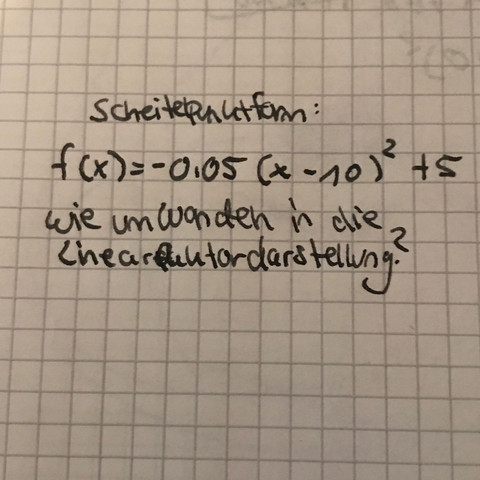 Scheitelpunktform:
f(x)=-0.05 (x-10)² +5
wie umwandeln in die
Linearfaktordarstellung?